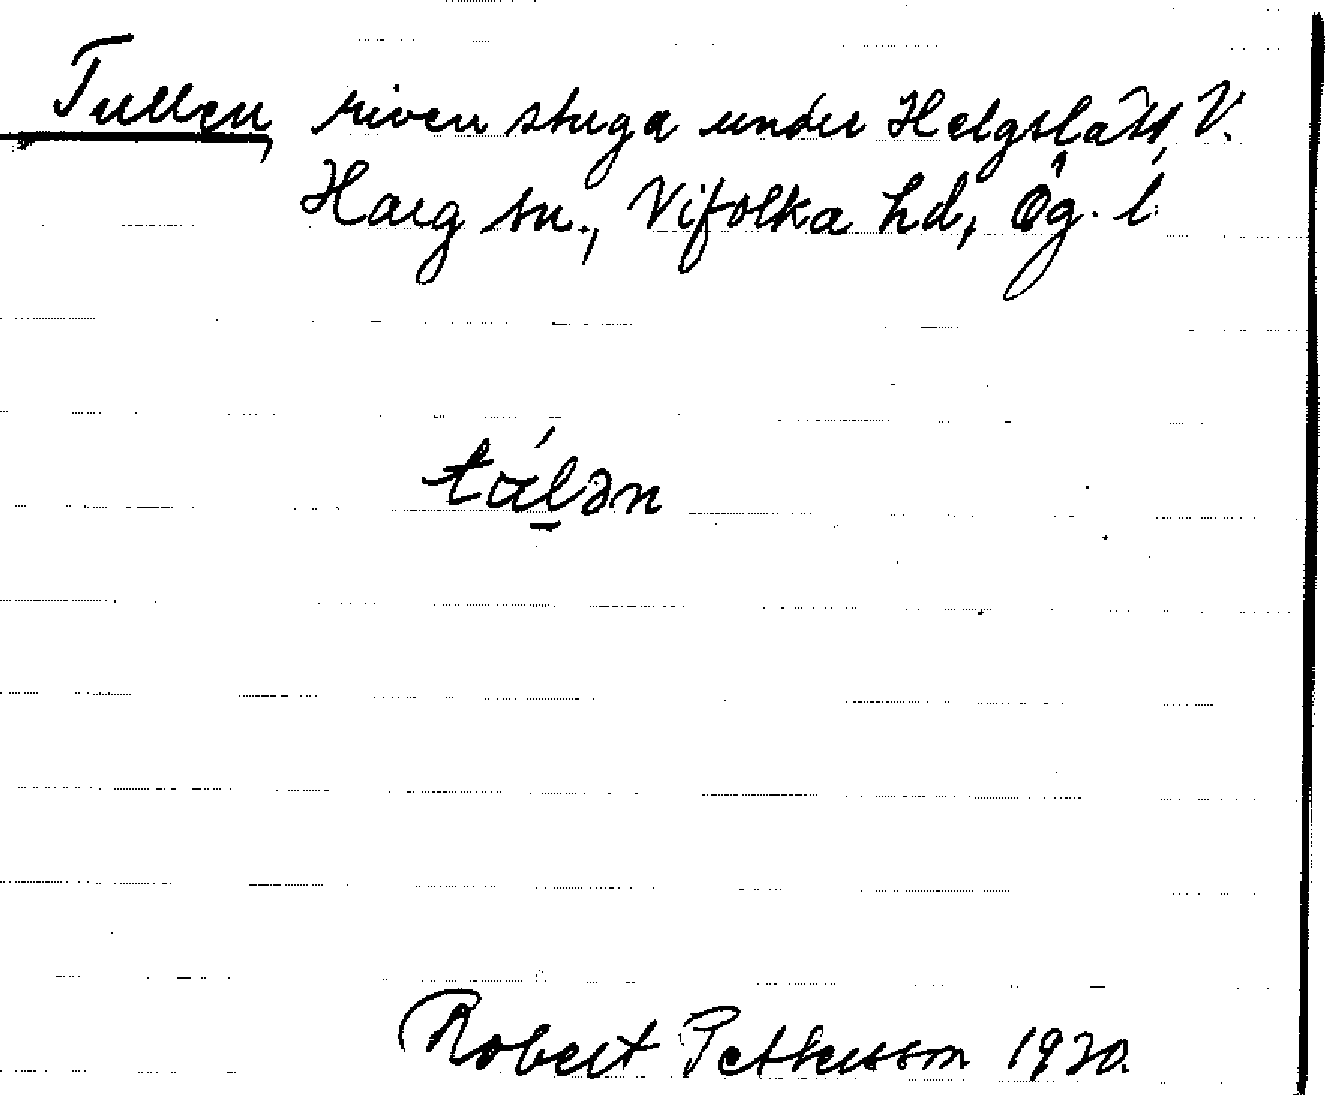 Tullen, riven stuga under Helgslätt, V.
Harg sn., Vifolka hd, Ög. l.
Robert Pettersson 1920.